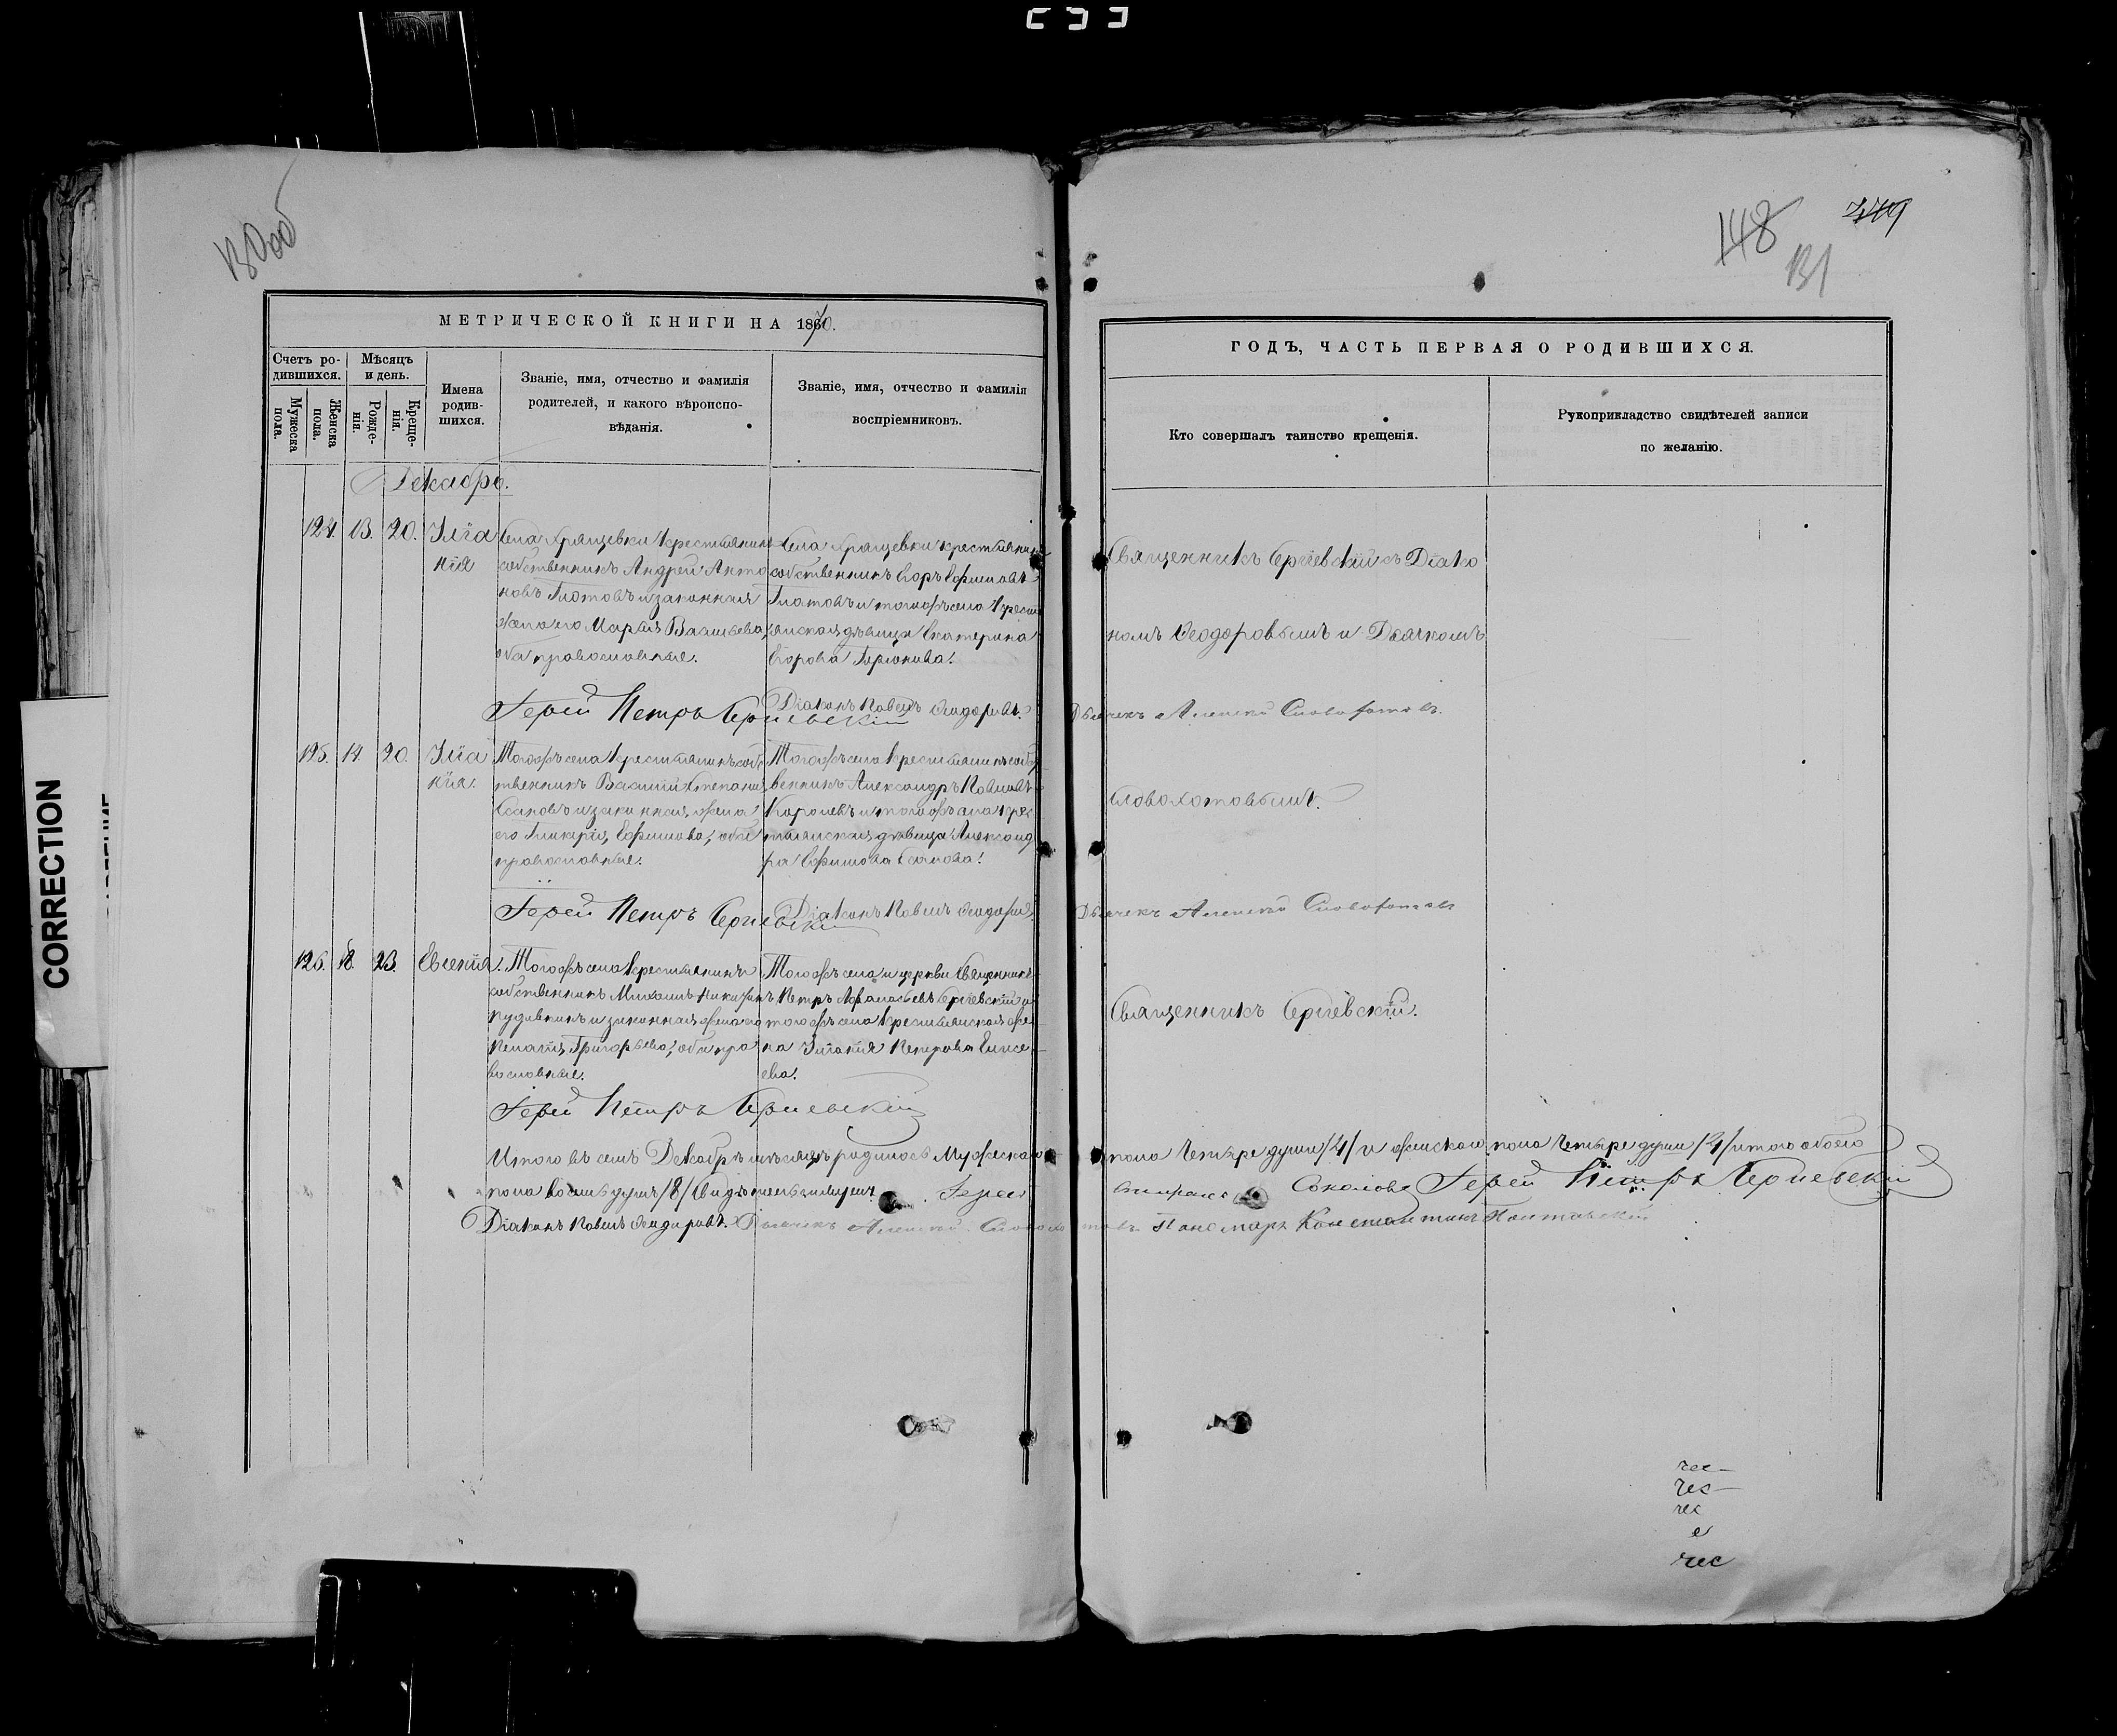 130об
148
749
131
CORRECTION
МЕТРИЧЕСКОЙ КНИГИ НА 1870.
Счетъ ро-
дившихся.
Мужеска пола.
Женска пола.
Мѣсяцъ
и день.
Рожде-
нія.
Креще-
нія.
Имена
родив-
шихся.
Званіе, имя, отчество и фамилія
родителей, и какого вѣроиспо-
вѣданія.
Званіе, имя, отчество и фамилія
воспріемниковъ.
ГОДЪ, ЧАСТЬ ПЕРВАЯ О РОДИВШИХСЯ.
Кто совершалъ таинство крещенія.
Рукоприкладство свидѣтелей записи
по желанію.
Декабрь.
124. 13. 20. Улiа
нія
Села Хрящевки крестьянинъ
собственникъ Андрей Анто
новъ Глотовъ и законная
жена его Марья Васильева,
оба православные.
Села Хрящевки крестьянинъ
собственникъ Егоръ Ефимовъ
Глотовъ и тогожъ села крест
янская дѣвица Екатерина
Егорова Горюнова.
Священникъ Сергіевскій съ Діако
номъ Ѳеодоровымъ и Дьячкомъ
Словохотовымъ.
Іерей Петръ Сергіевскій
Діаконъ Павелъ Ѳеодоровъ.
Дьячекъ Алексей Словохотовъ.
125. 14. 20. Улiа
нія.
Тогожъ села крестьянинъ собс
твенникъ Василій Степановъ
и законная жена
его Гликерія Ефимова, оба
православные.
Тогожъ села крестьянинъ собст
венникъ Александръ Павловъ
Королевъ и тогожъ села крес
тьянская дѣвица Александ
ра Ефимова
Іерей Петръ Сергіевскій
Діаконъ Павелъ Ѳеодоровъ
Дьячекъ Алексей Словохотовъ
126. 18. 23. Евгенія.
Тогожъ села крестьянинъ
собственникъ Михаилъ Никифоровъ
и законная жена его
Пелагія Григорьева, оба пра
вославные.
Тогожъ села и церкви Священникъ
Петръ Аѳанасьевъ Сергіевскій и
тогожъ села крестьянская же
на Уліанія Петрова Елисе
ева.
Священникъ Сергіевскій.
Іерей Петръ Сергіевскій
Итого въ семъ Декабрѣ мѣсяцѣ родилось Мужескаго пола четыре души /4/ и женскаго пола четыре души /4/ итого обоего
пола восмь душъ /8/ Іерей Соколовъ Іерей Петръ Сергіевскій
Діаконъ Павелъ Ѳеодоровъ. Дьячекъ Алексей Словохотовъ Пономарь Константинъ
чес
чес
чес
е
чес